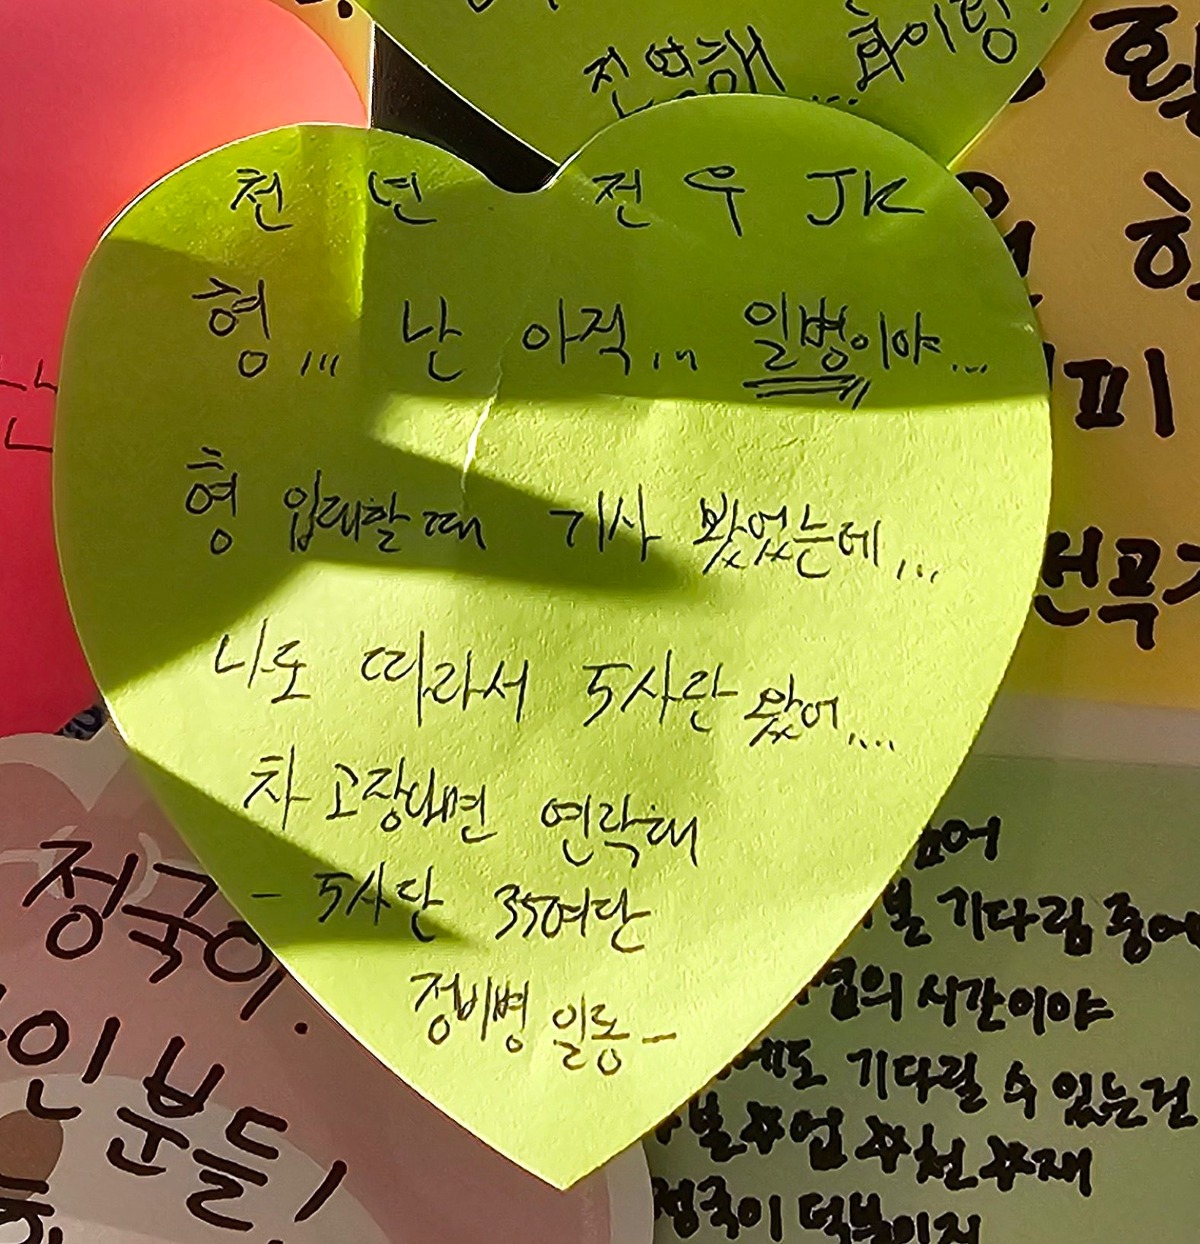 전역해... 화이팅!
천 년 전우 JK
형... 난 아직... 일병이야...
형 입대할때 기사 봤었는데...
나도 따라서 5사단 왔어....
차 고장나면 연락해
- 5사단 35여단
정비병 일동-
정국이.
인분들!
피
선곡
기다림 중에
의 시간이야
에도 기다릴 수 있는건
정국이 덕분이지